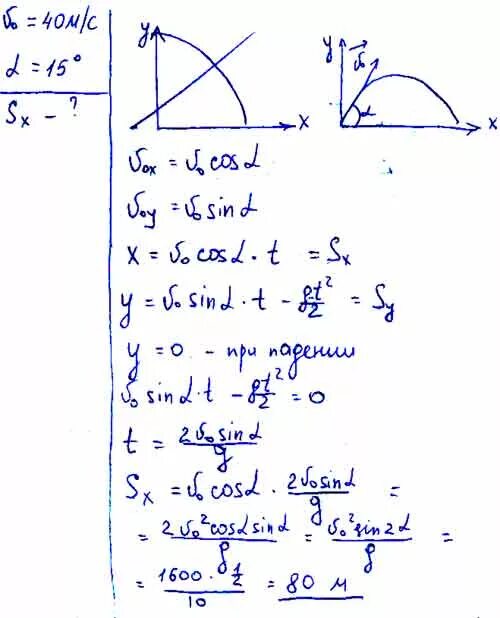 υ₀ = 40м/с
α = 15°
Sx - ?
y
x
y
υ₀
α
x
υ₀x = υ₀ cosα
υ₀y = υ₀ sinα
x = υ₀ cosα · t = Sx
y = υ₀ sinα · t - gt²/2 = Sy
y = 0 - при падении
υ₀ sinα·t - gt²/2 = 0
t = 2υ₀sinα/g
Sx = υ₀ cosα · 2υ₀sinα/g =
= 2υ₀²cosα sinα/g = υ₀²sin2α/g =
= 1600 · 1/2 / 10 = 80 м